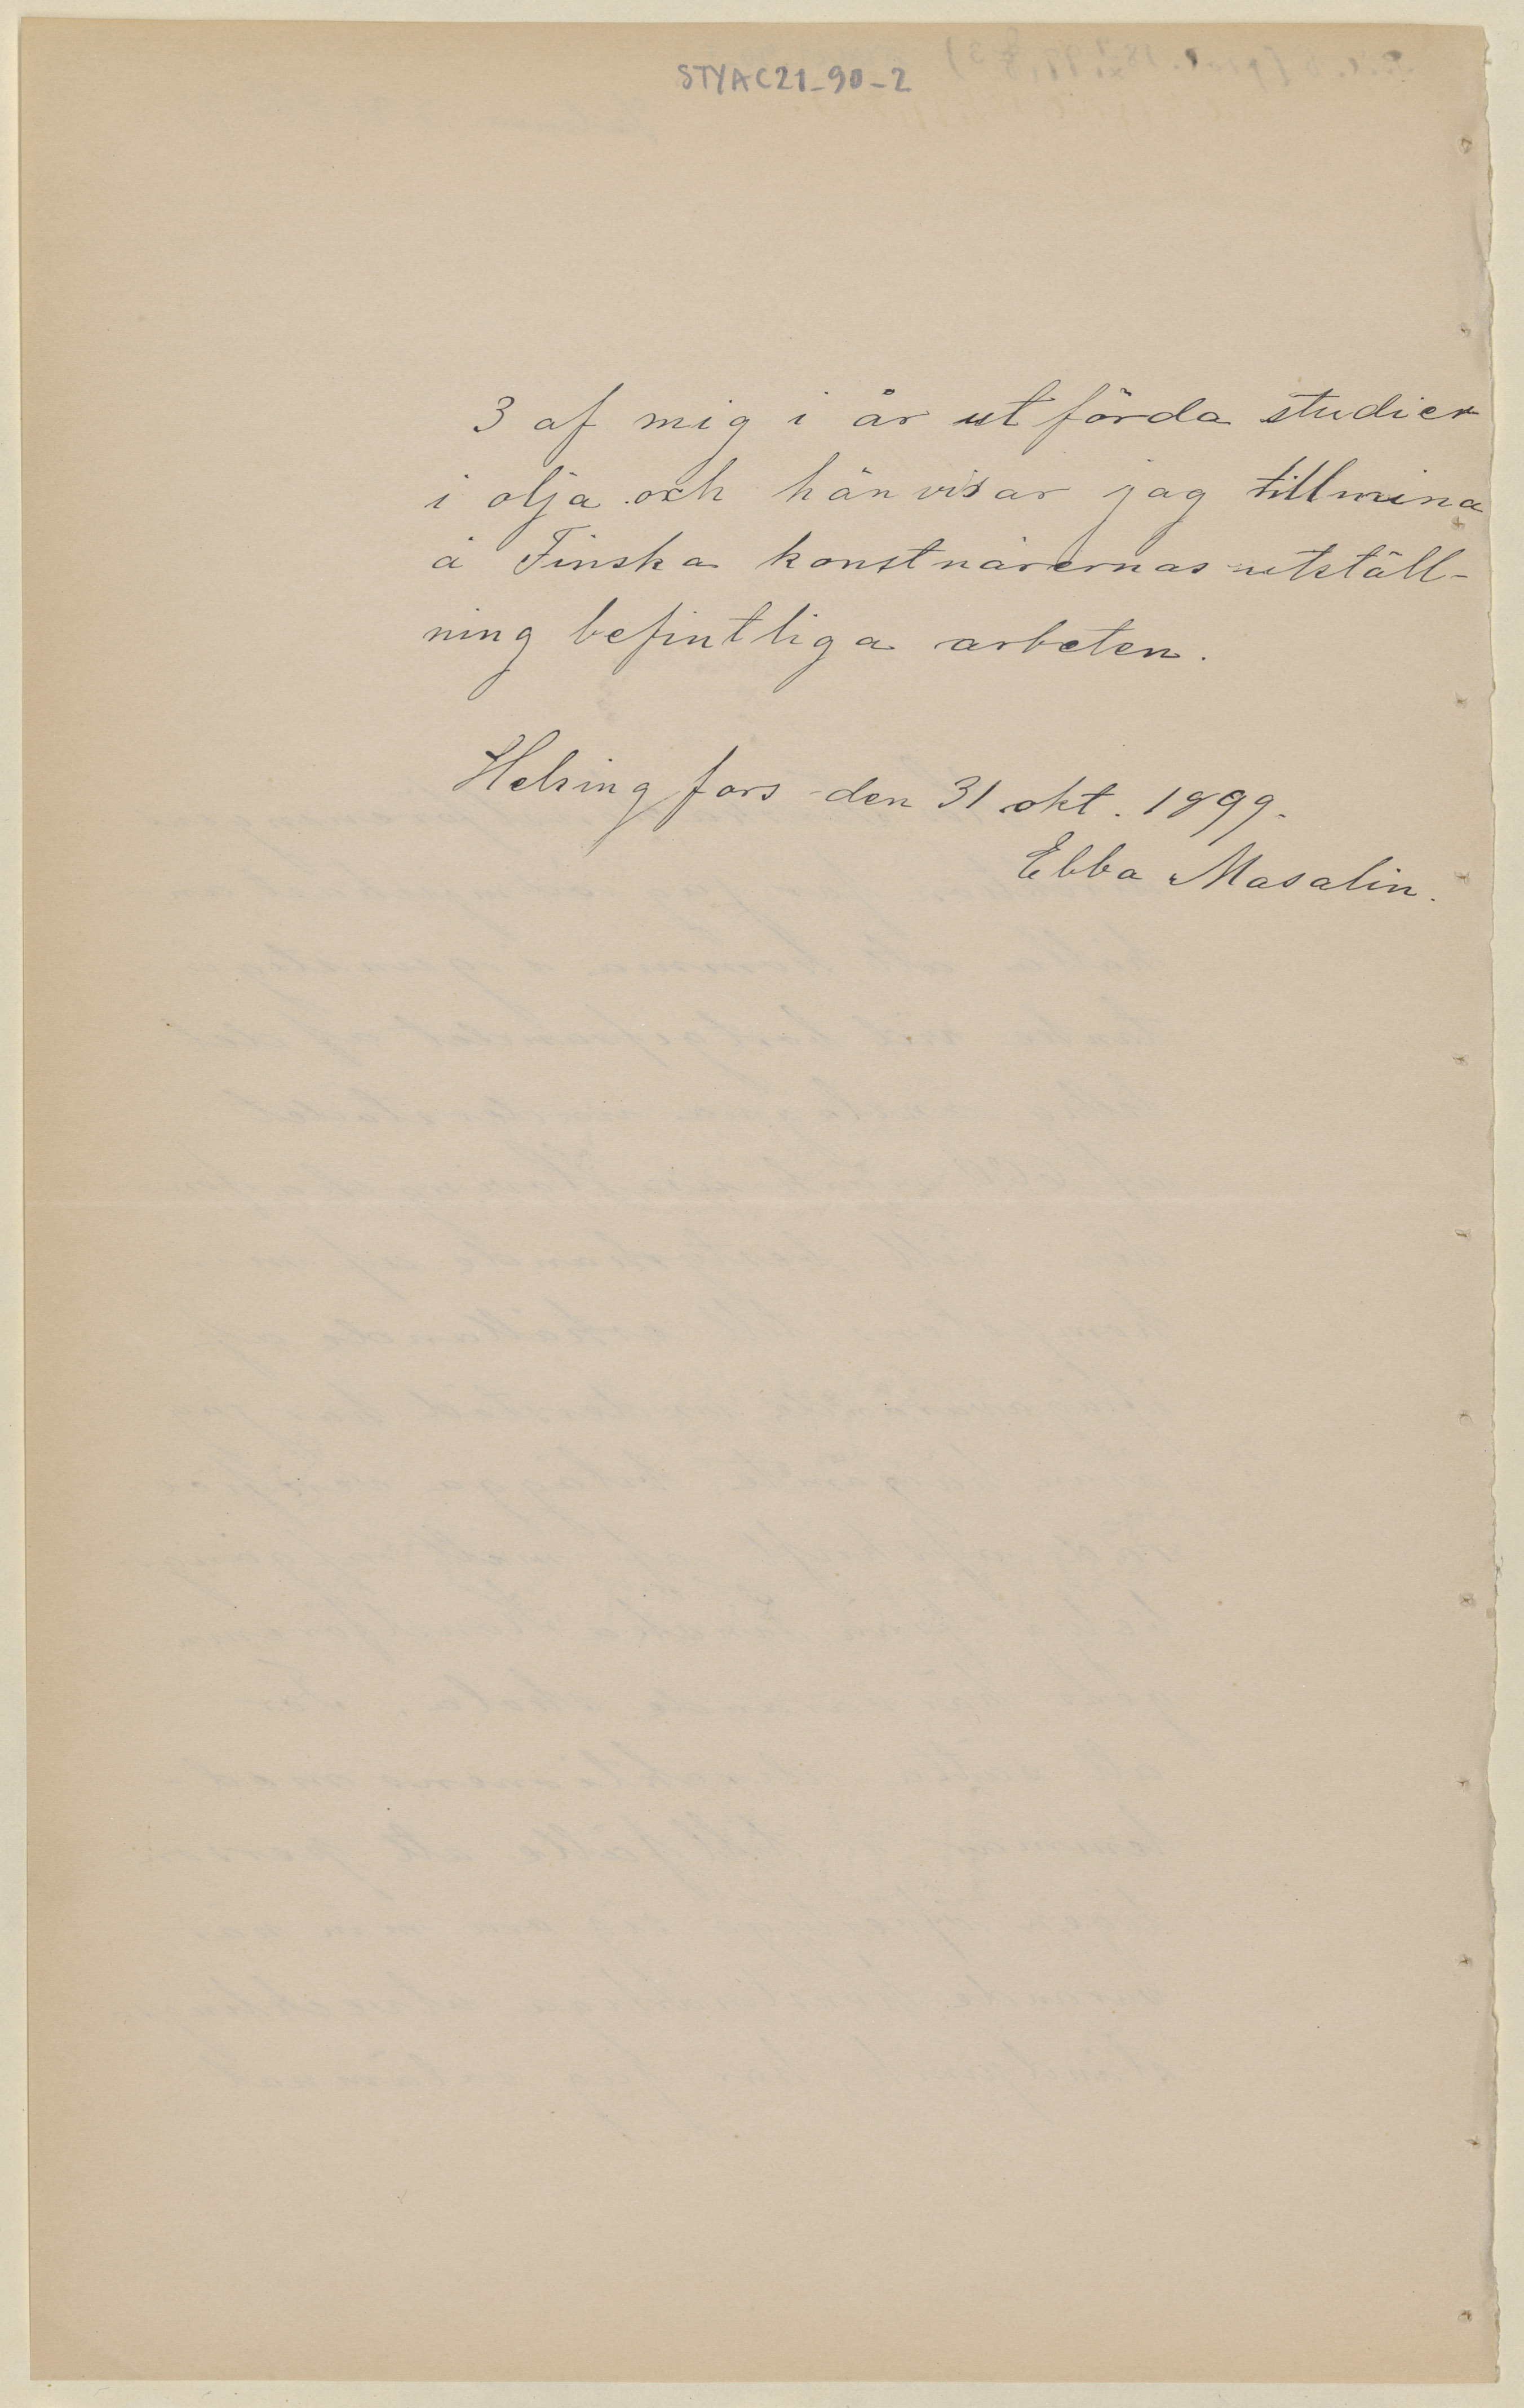 STYAC21_90-2
3 af mig i år utförda studier
i olja och hänvisar jag till mina
å Finska konstnärernas utställ-
ning befintliga arbeten.
Helsingfors den 31 okt. 1899.
Ebba Masalin.